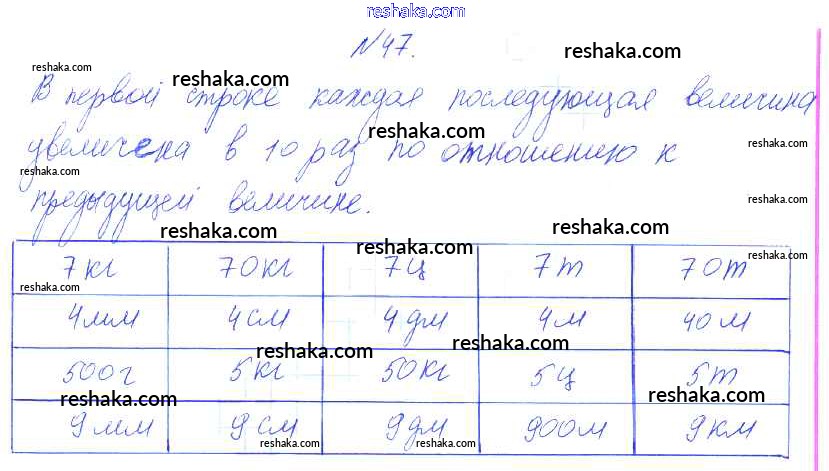 reshaka.com
№47.
reshaka.com
reshaka.com
reshaka.com
В первой строке каждая последующая величина
reshaka.com
увеличена в 10 раз по отношению к
reshaka.com
reshaka.com
предыдущей величине.
reshaka.com
reshaka.com
reshaka.com
7 кг 70 кг 7 ц 7 т 70 т
reshaka.com
4 мм 4 см 4 дм 4 м 40 м
reshaka.com
reshaka.com
500 г 5 кг 50 кг 5 ц 5 т
reshaka.com
reshaka.com
9 мм 9 см 9 дм 900 м 9 км
reshaka.com
reshaka.com
reshaka.com